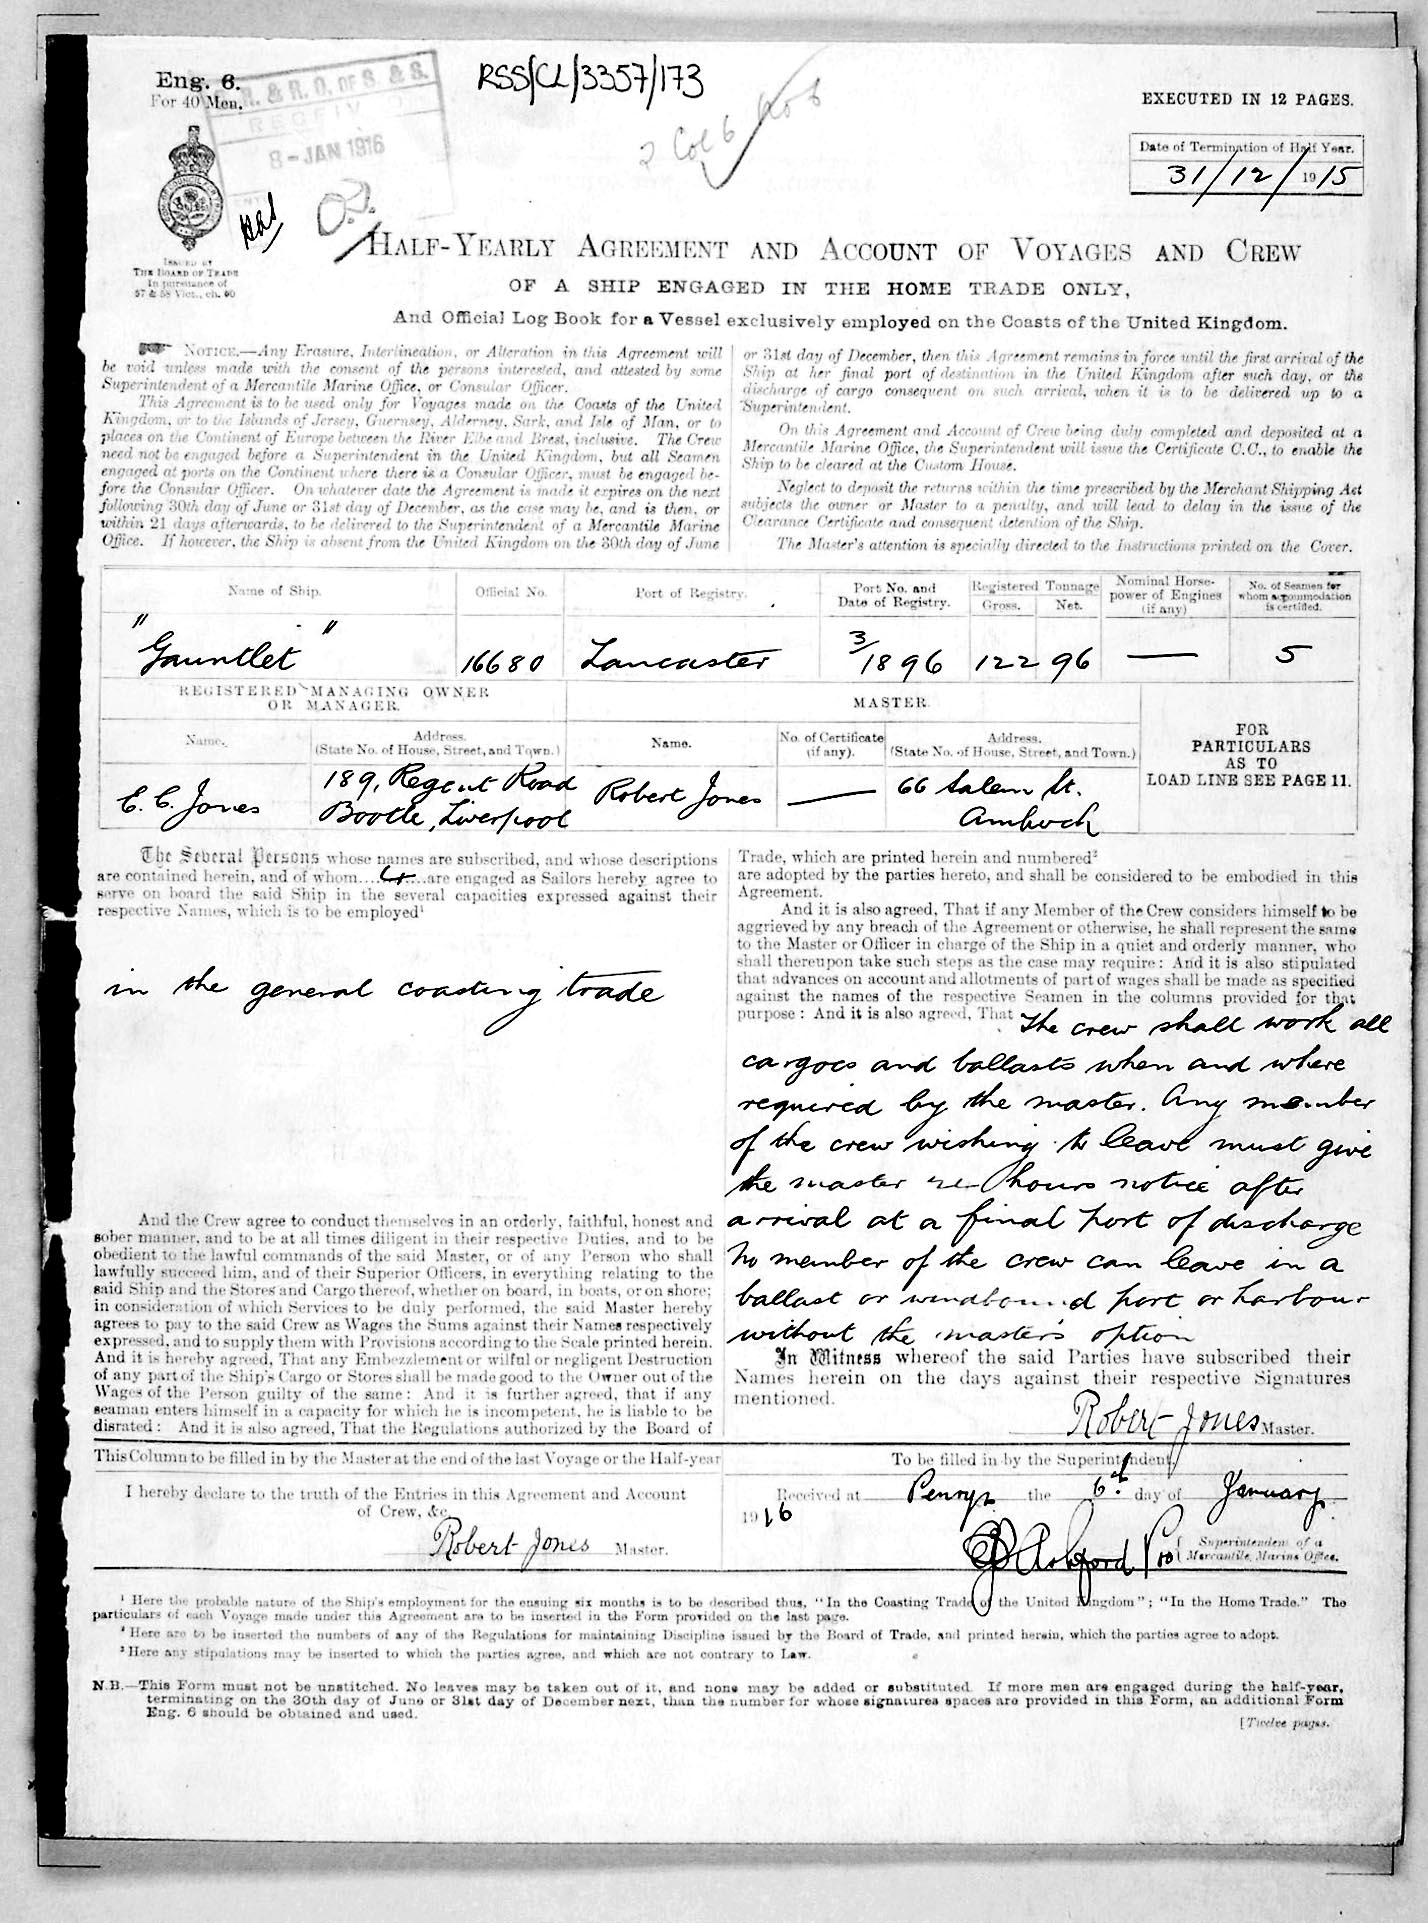 Eng. 6.
For 40 Men.
R. & R. O. OF S. & S.
RECEIV
8-JAN 1916
RSS/CL/3357/173
2 Col 6
EXECUTED IN 12 PAGES.
Date of Termination of Half Year.
31/12/1915
O.J.
ISSUED BY
THE BOARD OF TRADE
In pursuance of
57 & 58 Vict., ch. 60
HALF-YEARLY AGREEMENT AND ACCOUNT OF VOYAGES AND CREW
OF A SHIP ENGAGED IN THE HOME TRADE ONLY,
And Official Log Book for a Vessel exclusively employed on the Coasts of the United Kingdom.
NOTICE.—Any Erasure, Interlineation, or Alteration in this Agreement will
be void unless made with the consent of the persons interested, and attested by some
Superintendent of a Mercantile Marine Office, or Consular Officer.
This Agreement is to be used only for Voyages made on the Coasts of the United
Kingdom, or to the Islands of Jersey, Guernsey, Alderney, Sark, and Isle of Man, or to
places on the Continent of Europe between the River Elbe and Brest, inclusive. The Crew
need not be engaged before a Superintendent in the United Kingdom, but all Seamen
engaged at ports on the Continent where there is a Consular Officer, must be engaged be-
fore the Consular Officer. On whatever date the Agreement is made it expires on the next
following 30th day of June or 31st day of December, as the case may be, and is then, or
within 21 days afterwards, to be delivered to the Superintendent of a Mercantile Marine
Office. If however, the Ship is absent from the United Kingdom on the 30th day of June
or 31st day of December, then this Agreement remains in force until the first arrival of the
Ship at her final port of destination in the United Kingdom after such day, or the
discharge of cargo consequent on such arrival, when it is to be delivered up to a
Superintendent.
On this Agreement and Account of Crew being duly completed and deposited at a
Mercantile Marine Office, the Superintendent will issue the Certificate C.C., to enable the
Ship to be cleared at the Custom House.
Neglect to deposit the returns within the time prescribed by the Merchant Shipping Act
subjects the owner or Master to a penalty, and will lead to delay in the issue of the
Clearance Certificate and consequent detention of the Ship.
The Master's attention is specially directed to the Instructions printed on the Cover.
Name of Ship. Official No. Port of Registry. Port No. and Date of Registry. Registered Tonnage Gross. Net. Nominal Horse-power of Engines (if any) No. of Seamen for whom accommodation is certified.
"Gauntlet" 16680 Lancaster 3/1896 122 96 — 5
REGISTERED MANAGING OWNER
OR MANAGER.
MASTER.
Name. Address. (State No. of House, Street, and Town.) Name. No. of Certificate (if any). Address. (State No. of House, Street, and Town.)
FOR
PARTICULARS
AS TO
LOAD LINE SEE PAGE 11.
E. C. Jones 189, Regent Road Bootle, Liverpool Robert Jones — 66 Salem St. Amlwch
The Several Persons whose names are subscribed, and whose descriptions
are contained herein, and of whom....4....are engaged as Sailors hereby agree to
serve on board the said Ship in the several capacities expressed against their
respective Names, which is to be employed¹
in the general coasting trade
And the Crew agree to conduct themselves in an orderly, faithful, honest and
sober manner, and to be at all times diligent in their respective Duties, and to be
obedient to the lawful commands of the said Master, or of any Person who shall
lawfully succeed him, and of their Superior Officers, in everything relating to the
said Ship and the Stores and Cargo thereof, whether on board, in boats, or on shore;
in consideration of which Services to be duly performed, the said Master hereby
agrees to pay to the said Crew as Wages the Sums against their Names respectively
expressed, and to supply them with Provisions according to the Scale printed herein.
And it is hereby agreed, That any Embezzlement or wilful or negligent Destruction
of any part of the Ship's Cargo or Stores shall be made good to the Owner out of the
Wages of the Person guilty of the same: And it is further agreed, that if any
seaman enters himself in a capacity for which he is incompetent, he is liable to be
disrated: And it is also agreed, That the Regulations authorized by the Board of
Trade, which are printed herein and numbered²
are adopted by the parties hereto, and shall be considered to be embodied in this
Agreement.
And it is also agreed, That if any Member of the Crew considers himself to be
aggrieved by any breach of the Agreement or otherwise, he shall represent the same
to the Master or Officer in charge of the Ship in a quiet and orderly manner, who
shall thereupon take such steps as the case may require: And it is also stipulated
that advances on account and allotments of part of wages shall be made as specified
against the names of the respective Seamen in the columns provided for that
purpose: And it is also agreed, That The crew shall work all
cargoes and ballasts when and where
required by the master. Any member
of the crew wishing to leave must give
the master hours notice after
arrival at a final port of discharge
No member of the crew can leave in a
ballast or windbound port or harbour
without the master's option
In Witness whereof the said Parties have subscribed their
Names herein on the days against their respective Signatures
mentioned.
Robert Jones Master.
This Column to be filled in by the Master at the end of the last Voyage or the Half-year
I hereby declare to the truth of the Entries in this Agreement and Account
of Crew, &c.
Robert Jones Master.
To be filled in by the Superintendent
Received at Penryn the 6th day of January
1916
Ashford Superintendent of a
Mercantile Marine Office.
¹ Here the probable nature of the Ship's employment for the ensuing six months is to be described thus, "In the Coasting Trade of the United Kingdom"; "In the Home Trade." The
particulars of each Voyage made under this Agreement are to be inserted in the Form provided on the last page.
² Here are to be inserted the numbers of any of the Regulations for maintaining Discipline issued by the Board of Trade, and printed herein, which the parties agree to adopt.
³ Here any stipulations may be inserted to which the parties agree, and which are not contrary to Law.
N.B.—This Form must not be unstitched. No leaves may be taken out of it, and none may be added or substituted. If more men are engaged during the half-year,
terminating on the 30th day of June or 31st day of December next, than the number for whose signatures spaces are provided in this Form, an additional Form
Eng. 6 should be obtained and used.
[Twelve pages.